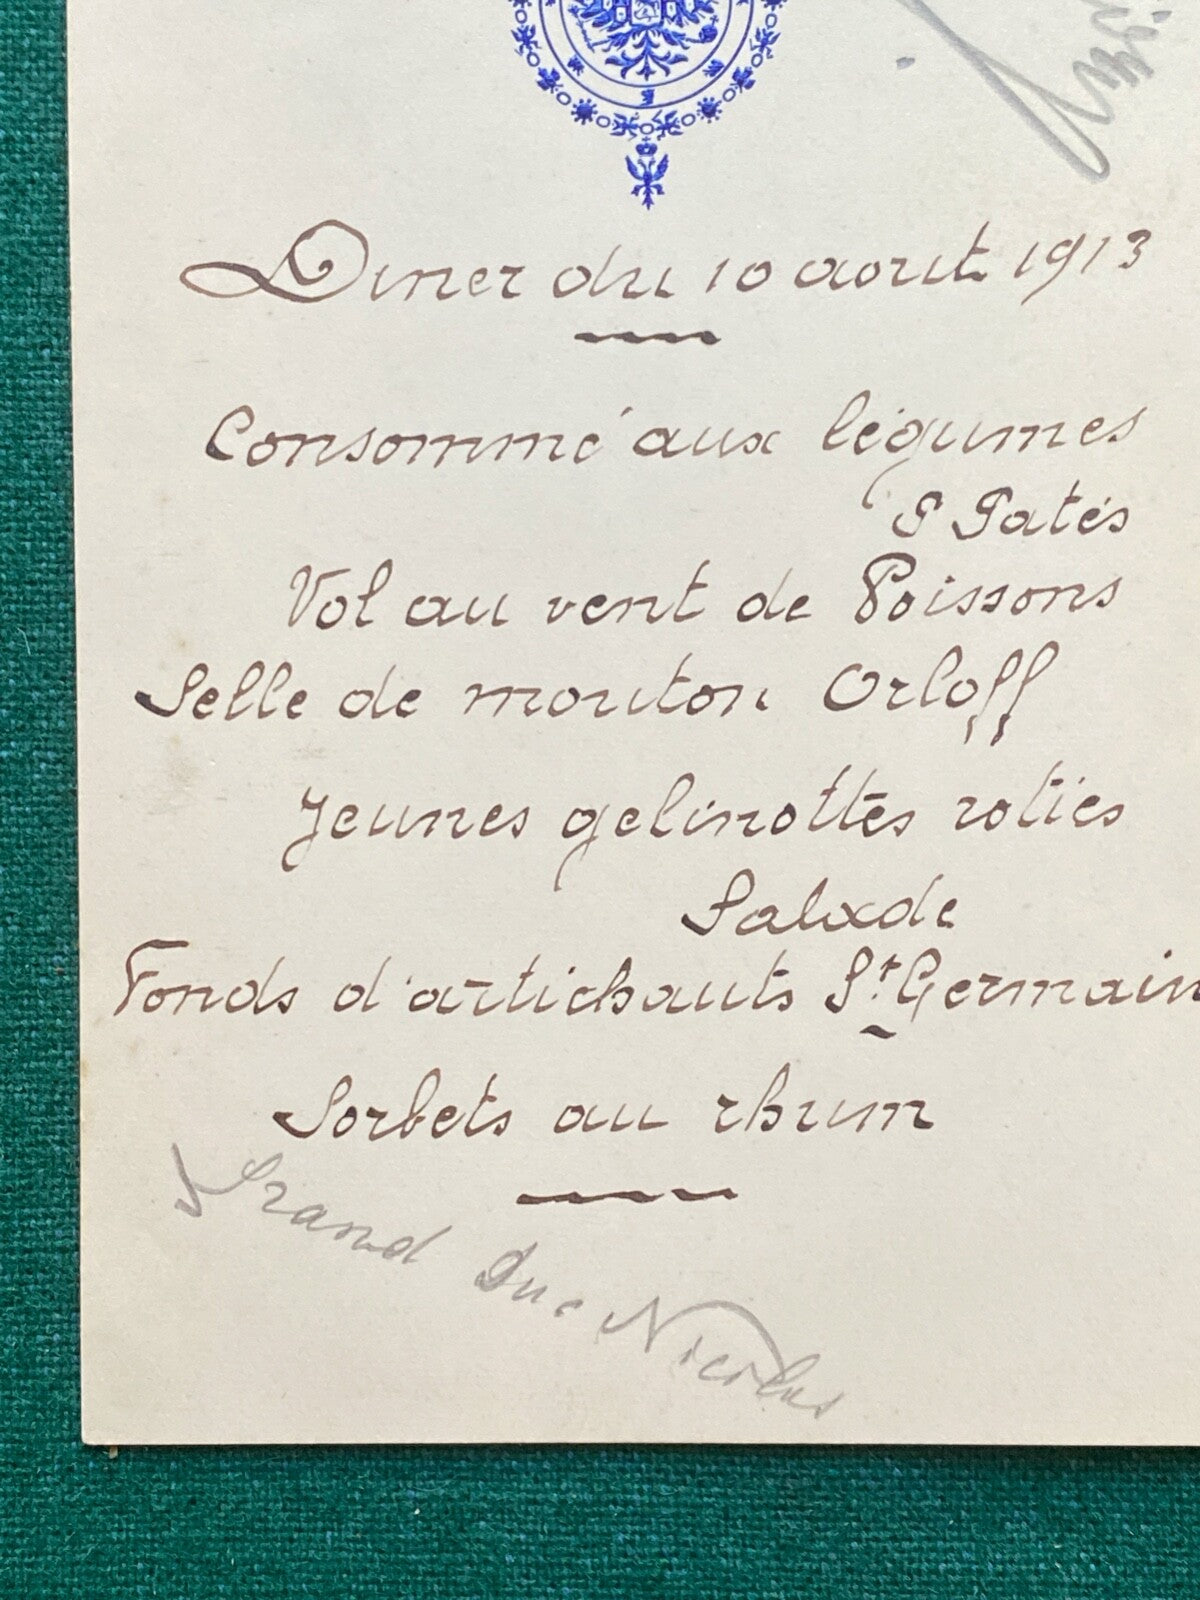 Diner du 10 aout 1913
Consommé aux légumes
P Patés
Vol au vent de Poissons
Selle de mouton Orloff
Jeunes gelinottes roties
Salade
Fonds d'artichauts St. Germain
Sorbets au rhum
Grand Duc Nicolas